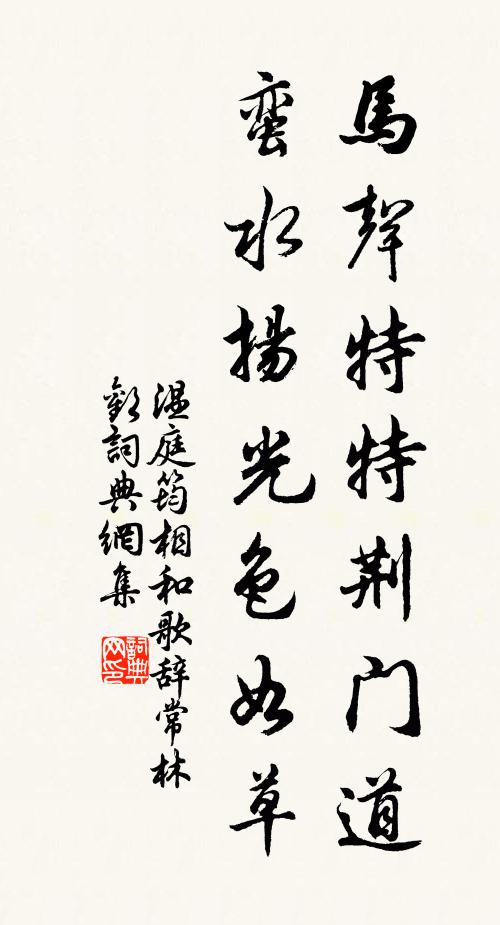 馬聲特特荆门道
蛮水揚光色如草
温庭筠相和歌辞常林
歡詞典網集
詞典
网印